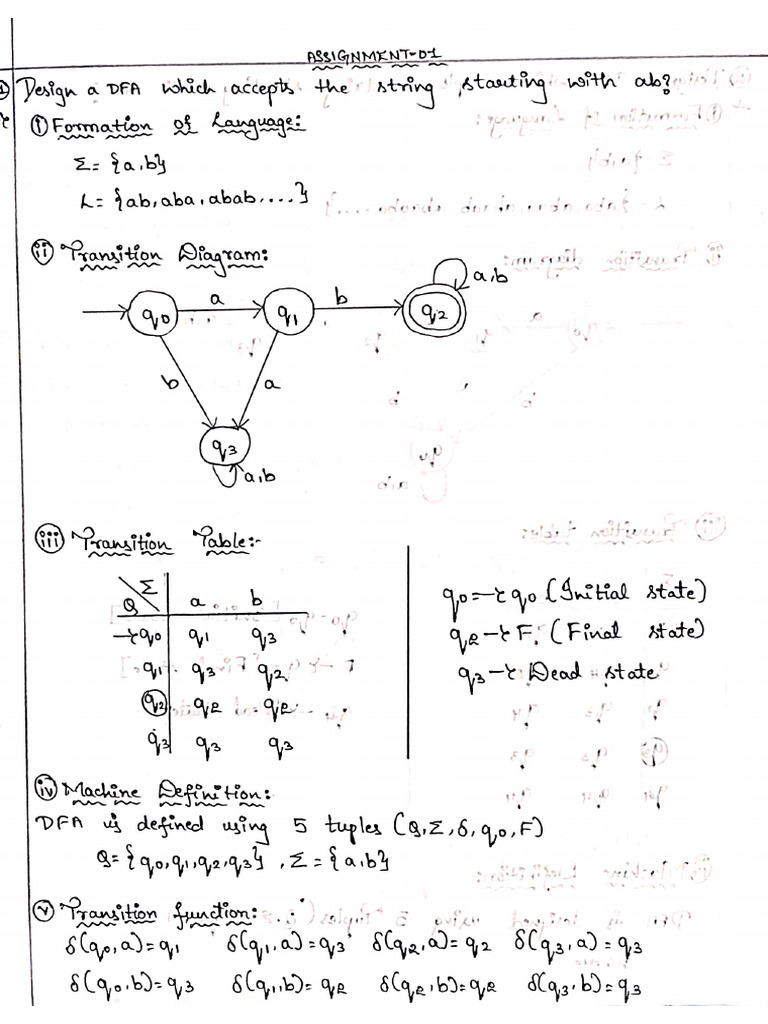 ASSIGNMENT-01
1) Design a DFA which accepts the string starting with ab?
i) Formation of Language:
Σ = {a,b}
L = {ab, aba, abab,....}
ii) Transition Diagram:
a,b
q0 a q1 b q2
b a
q3
a,b
iii) Transition Table:-
Σ
Q a b
→q0 q1 q3
q1 q3 q2
q2 q2 q2
q3 q3 q3
q0 → q0 (Initial state)
q2 → F. (Final state)
q3 → Dead state
iv) Machine Definition:
DFA is defined using 5 tuples (Q,Σ,δ,q0,F)
Q = {q0,q1,q2,q3}, Σ = {a,b}
v) Transition function:
δ(q0,a)=q1 δ(q1,a)=q3 δ(q2,a)=q2 δ(q3,a)=q3
δ(q0,b)=q3 δ(q1,b)=q2 δ(q2,b)=q2 δ(q3,b)=q3